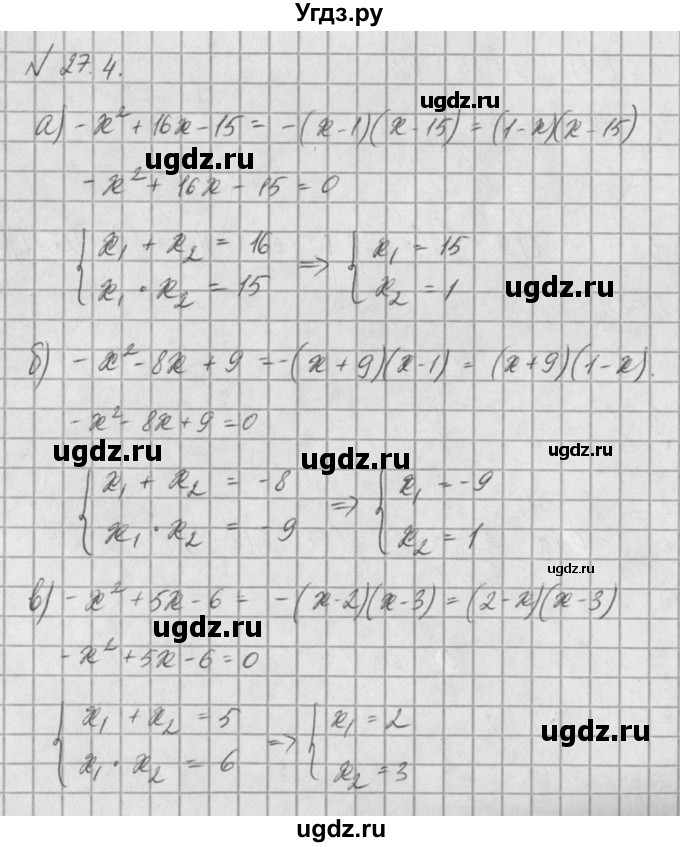 Угдз.ру
№ 27.4.
а) -x² + 16x - 15 = -(x-1)(x-15) = (1-x)(x-15)
ugdz.ru
ugdz.ru
-x² + 16x - 15 = 0
{ x₁ + x₂ = 16 ⇒ { x₁ = 15
x₁ · x₂ = 15 x₂ = 1
ugdz.ru
б) -x² - 8x + 9 = -(x+9)(x-1) = (x+9)(1-x).
-x² - 8x + 9 = 0
ugdz.ru
ugdz.ru
{ x₁ + x₂ = -8 ⇒ { x₁ = -9
x₁ · x₂ = -9 x₂ = 1
ugdz.ru
в) -x² + 5x - 6 = -(x-2)(x-3) = (2-x)(x-3)
ugdz.ru
-x² + 5x - 6 = 0
{ x₁ + x₂ = 5 ⇒ { x₁ = 2
x₁ · x₂ = 6 x₂ = 3
ugdz.ru
ugdz.ru